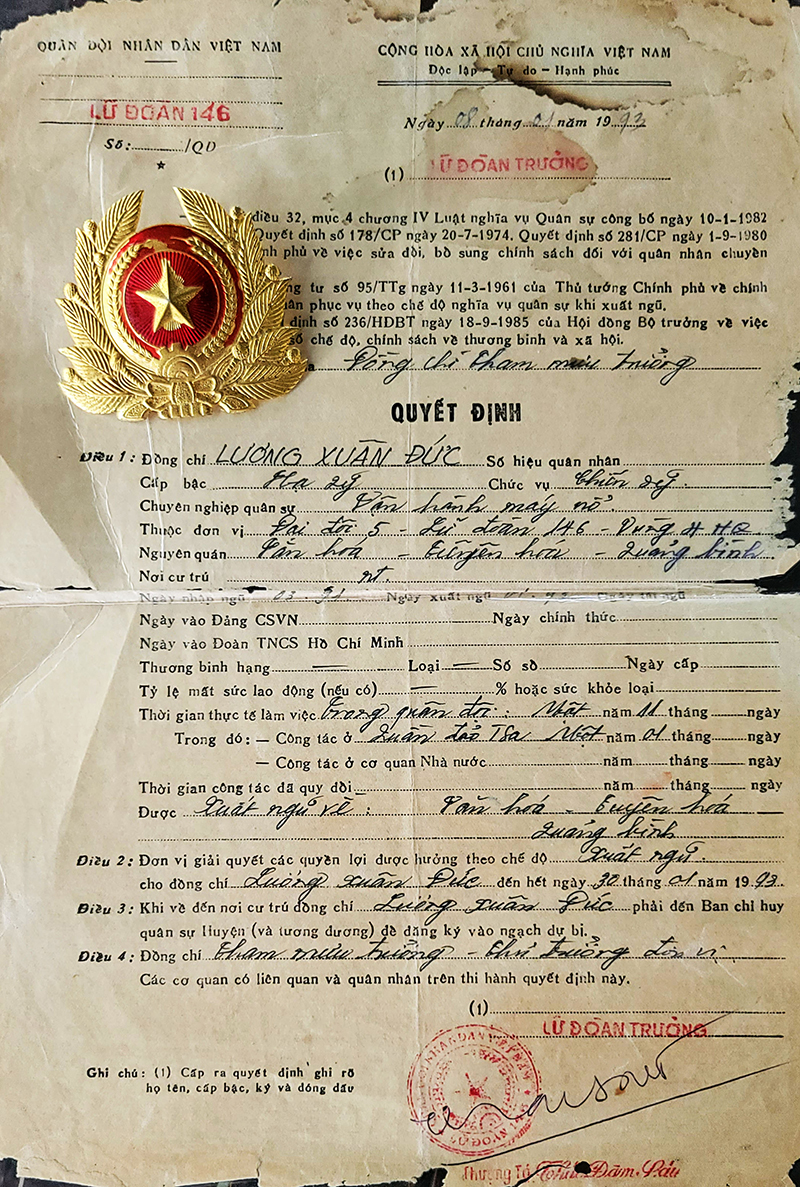 QUÂN ĐỘI NHÂN DÂN VIỆT NAM
LỮ ĐOÀN 146
Số: /QĐ
CỘNG HÒA XÃ HỘI CHỦ NGHĨA VIỆT NAM
Độc lập – Tự do – Hạnh phúc
Ngày 08 tháng 01 năm 1993
(1) LỮ ĐOÀN TRƯỞNG
điều 32, mục 4 chương IV Luật nghĩa vụ Quân sự công bố ngày 10-1-1982
Quyết định số 178/CP ngày 20-7-1974. Quyết định số 281/CP ngày 1-9-1980
phủ về việc sửa đổi, bổ sung chính sách đối với quân nhân chuyên
tư số 95/TTg ngày 11-3-1961 của Thủ tướng Chính phủ về chính
phục vụ theo chế độ nghĩa vụ quân sự khi xuất ngũ.
định số 236/HDBT ngày 18-9-1985 của Hội đồng Bộ trưởng về việc
số chế độ, chính sách về thương binh và xã hội.
Đồng chí tham mưu trưởng
QUYẾT ĐỊNH
Điều 1: Đồng chí LƯƠNG XUÂN ĐỨC Số hiệu quân nhân
Cấp bậc Hạ sỹ Chức vụ Chiến sỹ.
Chuyên nghiệp quân sự Vận hành máy nổ.
Thuộc đơn vị Đại đội 5 - Lữ đoàn 146 - Vùng 4 HQ
Nguyên quán Văn hoá - Tuyên hoá - Quảng bình.
Nơi cư trú nt.
Ngày nhập ngũ 03-91. Ngày xuất ngũ Ngày tái ngũ
Ngày vào Đảng CSVN Ngày chính thức
Ngày vào Đoàn TNCS Hồ Chí Minh
Thương binh hạng — Loại — Số sổ Ngày cấp
Tỷ lệ mất sức lao động (nếu có) — % hoặc sức khỏe loại
Thời gian thực tế làm việc trong quân đội: Một năm 11 tháng ngày
Trong đó: — Công tác ở Quần đảo TSa Một năm 01 tháng ngày
— Công tác ở cơ quan Nhà nước năm tháng ngày
Thời gian công tác đã quy đổi năm tháng ngày
Được Xuất ngũ về: Văn hoá - Tuyên hoá
Quảng bình
Điều 2: Đơn vị giải quyết các quyền lợi được hưởng theo chế độ Xuất ngũ.
cho đồng chí Lương Xuân Đức đến hết ngày 30 tháng 01 năm 1993.
Điều 3: Khi về đến nơi cư trú đồng chí Lương Xuân Đức phải đến Ban chỉ huy
quân sự Huyện (và tương đương) để đăng ký vào ngạch dự bị.
Điều 4: Đồng chí tham mưu trưởng - thủ trưởng đơn vị
Các cơ quan có liên quan và quân nhân trên thi hành quyết định này.
(1)
LỮ ĐOÀN TRƯỞNG
Ghi chú: (1) Cấp ra quyết định ghi rõ
họ tên, cấp bậc, ký và đóng dấu